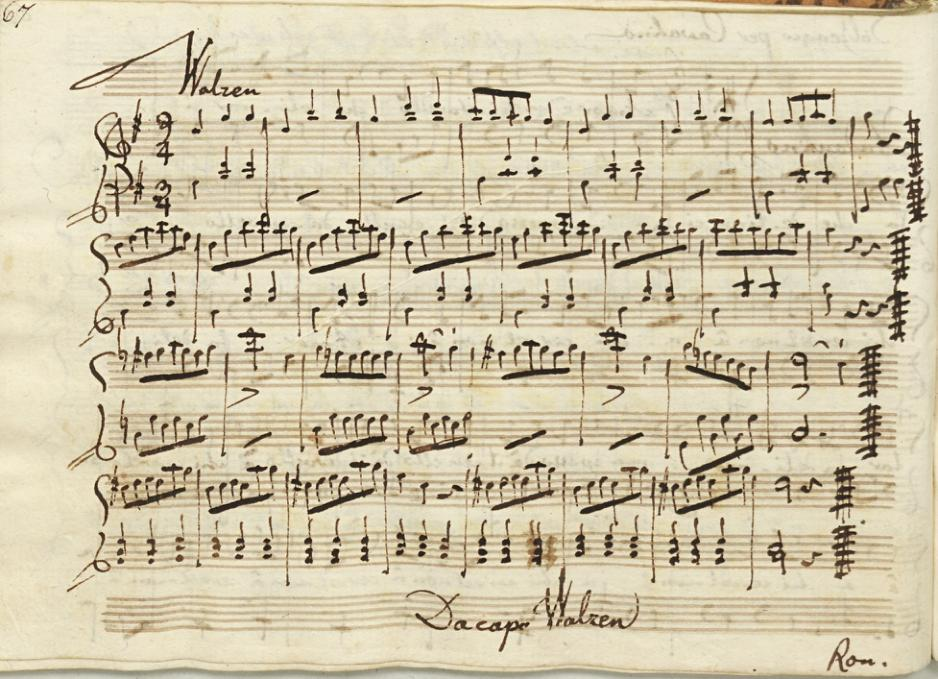 67
Walzen
3
4
3
4
Dacapo Walzen
Ron.